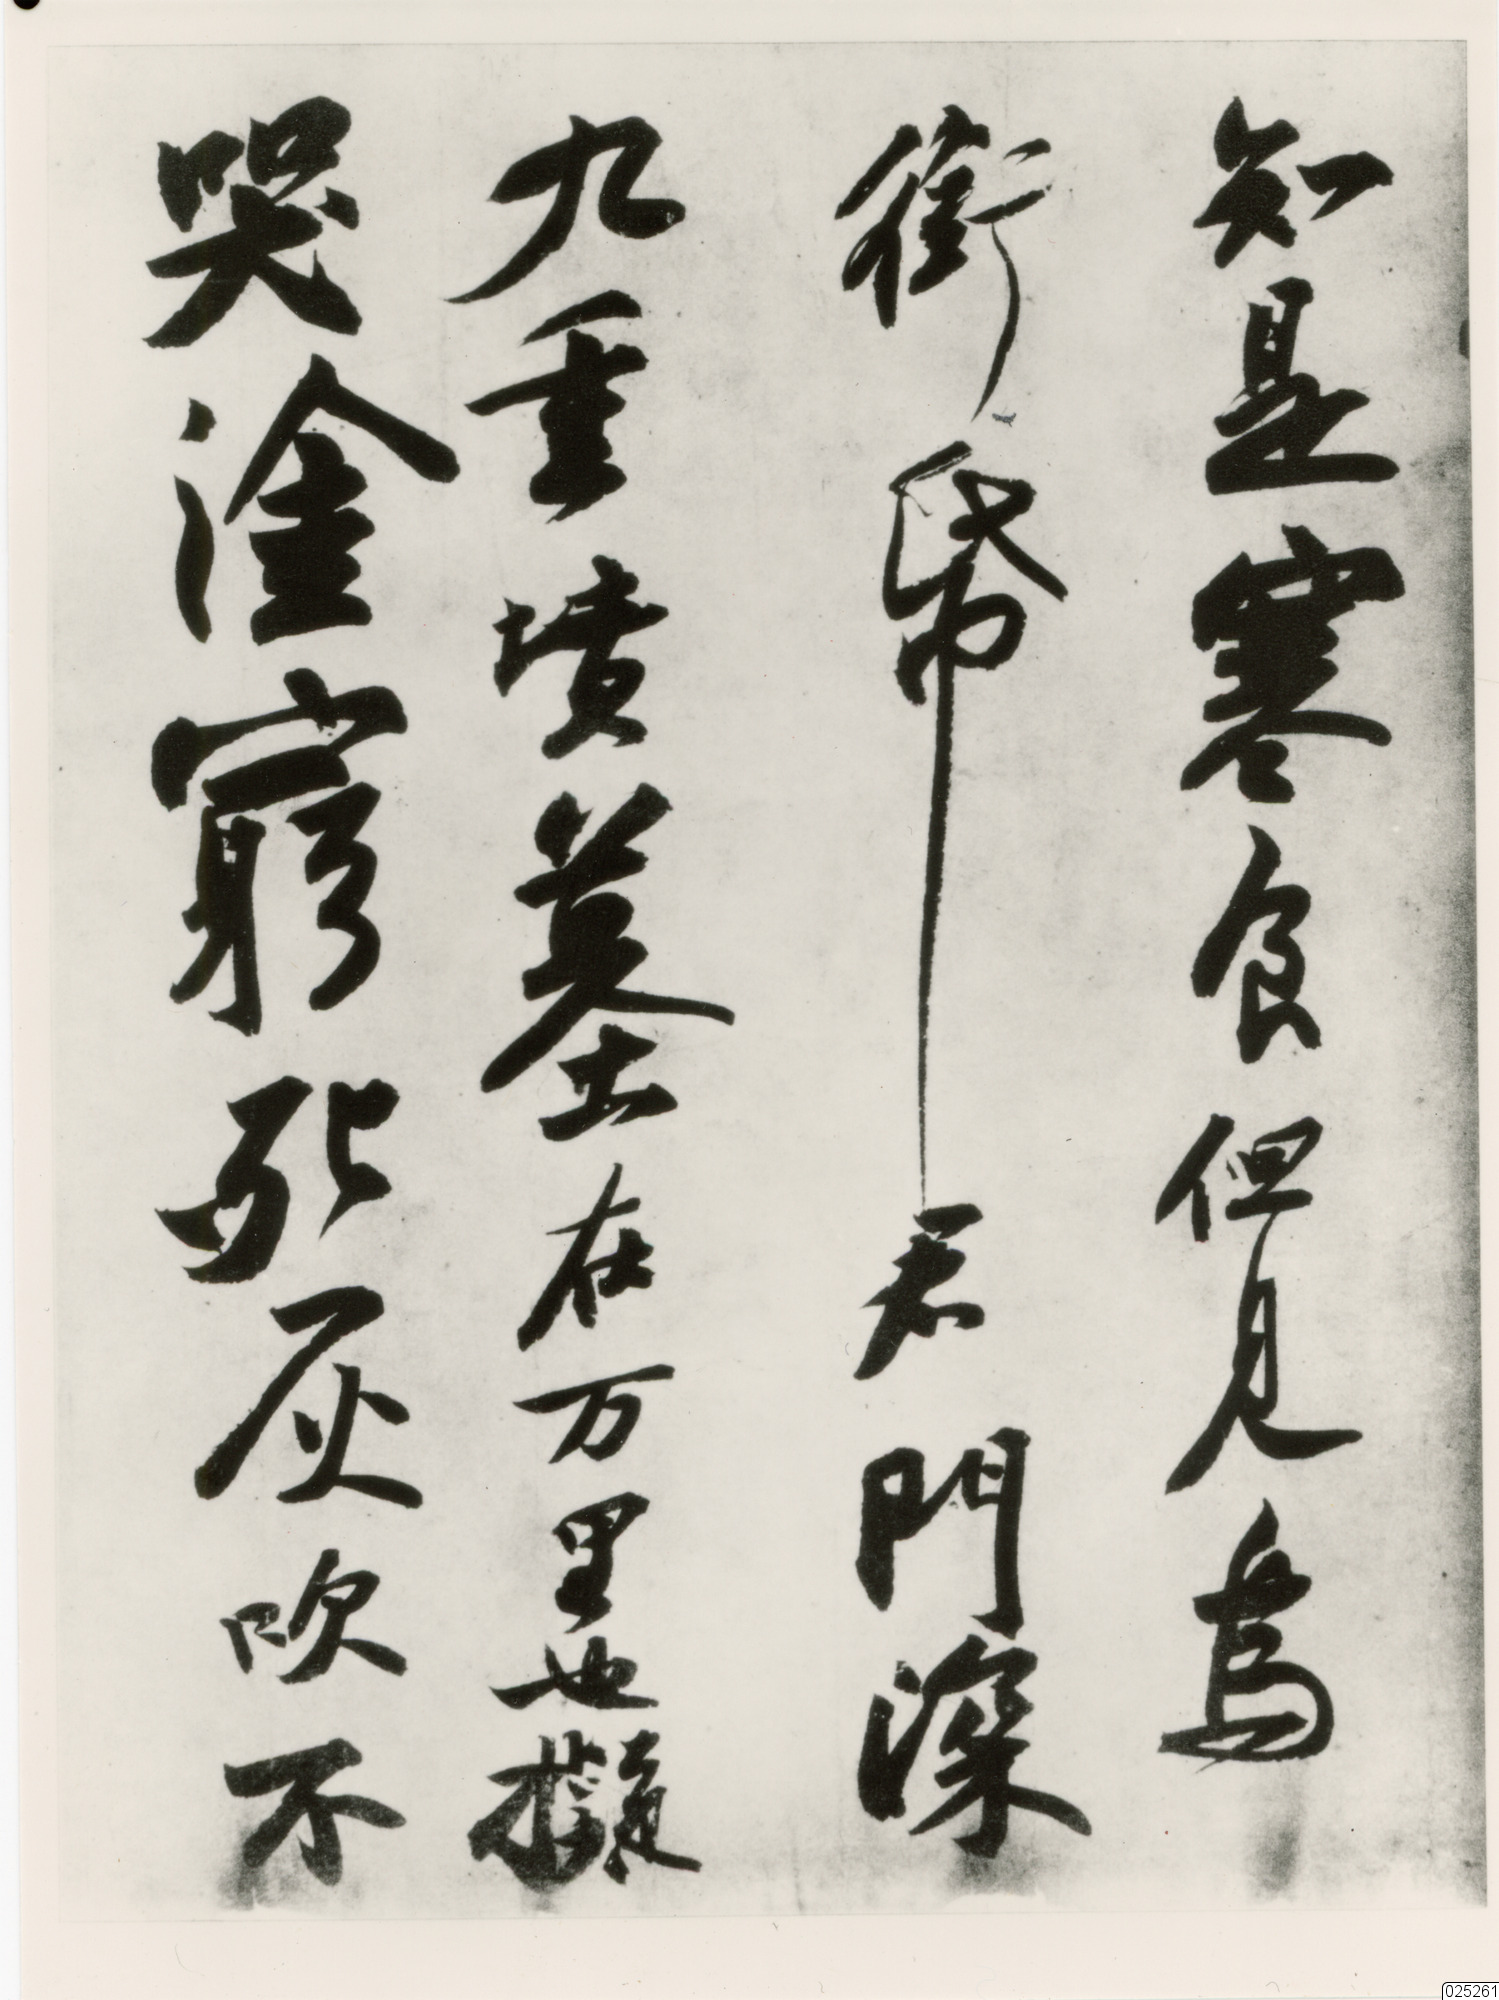 知是寒食但見烏
銜帋君門深
九重墳墓在万里也擬
哭塗窮死灰吹不
025261